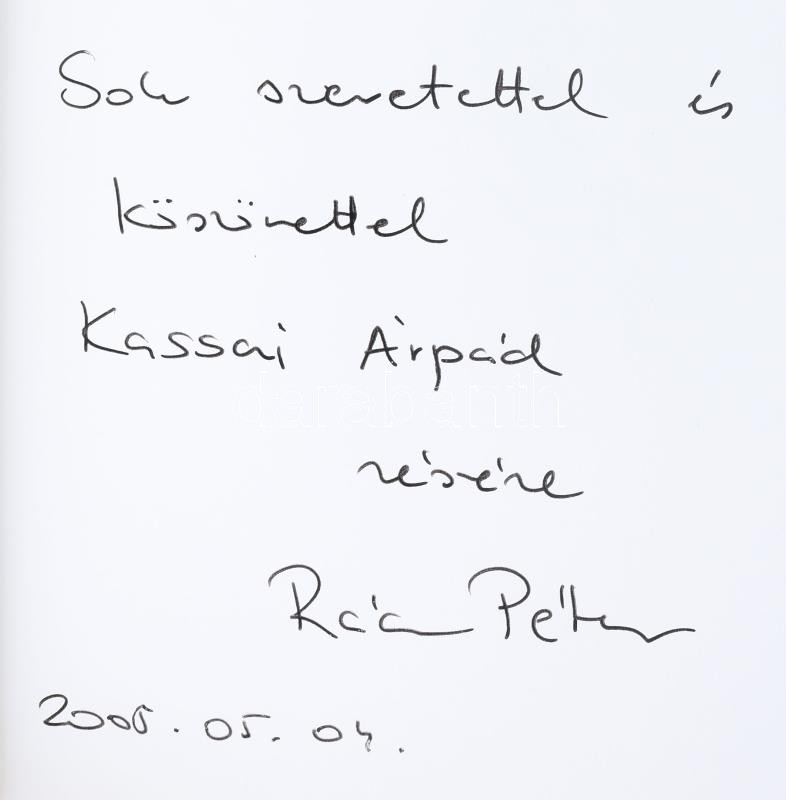 Sok szeretettel és
köszönettel
Kassai Árpád
részére
Rácz Péter
2005. 05. 04.
darabanth